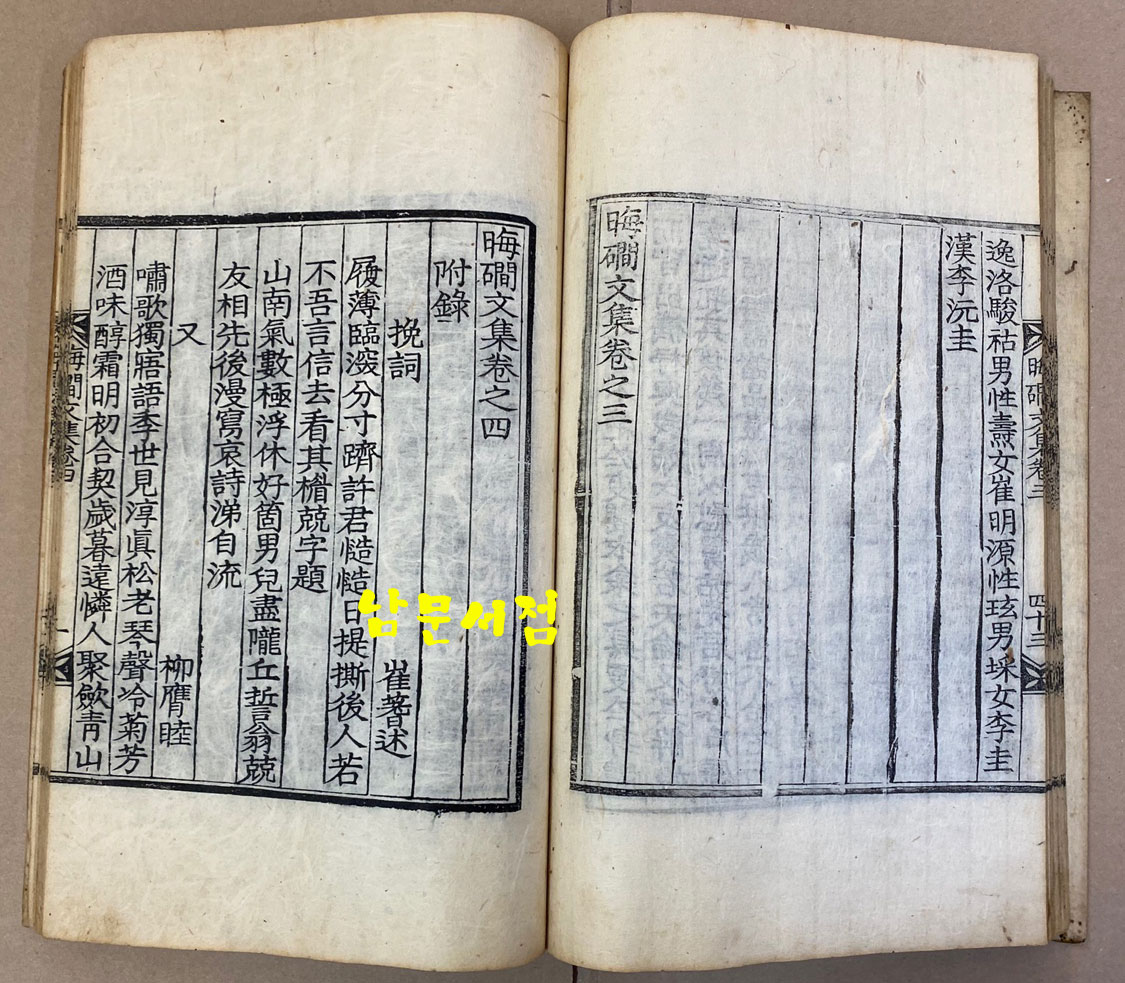 逸洛駿祜男性燾女崔明源性玹男埰女李圭
漢李沅圭
晦磵文集卷之三
晦磵文集卷三
四十三
晦磵文集卷之四
附錄
挽詞
崔蓍述
履薄臨深分寸躋許君慥慥日提撕後人若
不吾言信去看其楣兢字題
山南氣數極浮休好箇男兒盡隴丘誓翁兢
友相先後漫寫哀詩涕自流
又
柳膺睦
嘯歌獨寤語季世見淳眞松老琴聲冷菊芳
酒味醇霜明初合契歲暮遠憐人聚歛靑山
晦磵文集卷四
一
남문서점